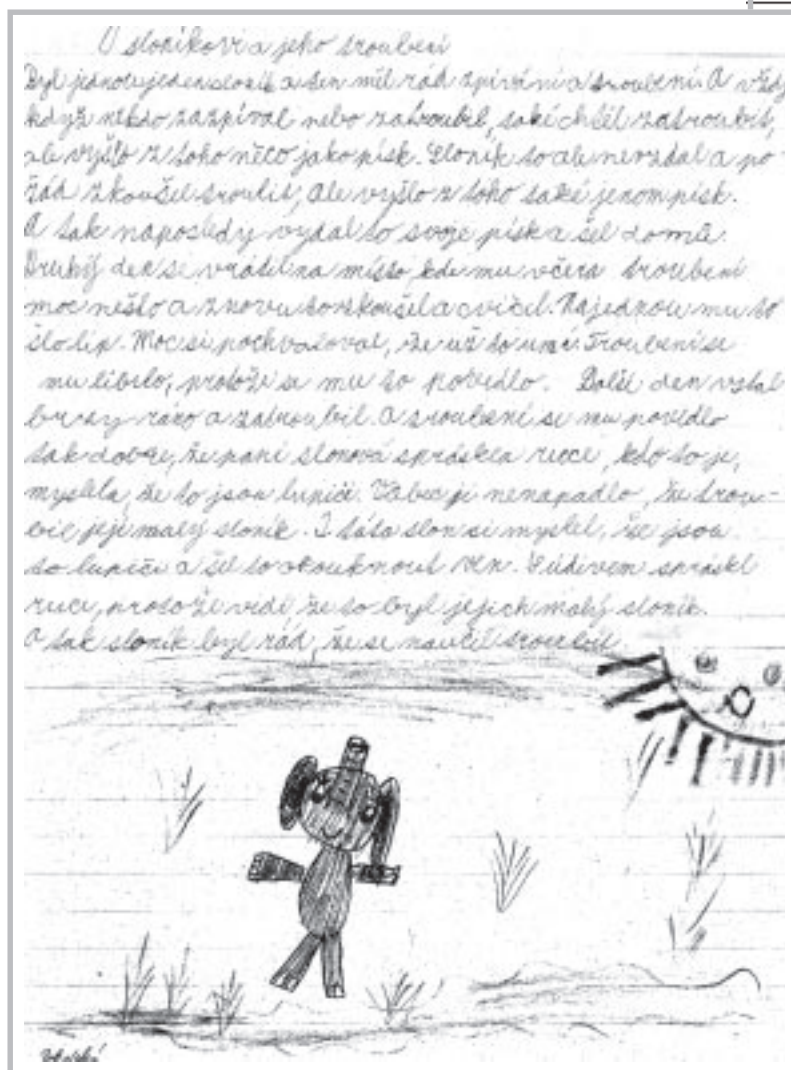 O sloníkovi a jeho troubení
Byl jednou jeden sloník a ten měl rád zpívání a troubení. A vždy
když někdo zazpíval nebo zatroubil, také chtěl zatroubit,
ale vyšlo z toho něco jako písk. Sloník to ale nevzdal a po-
řád zkoušel troubit, ale vyšlo z toho také jenom písk.
A tak naposledy vydal to svoje písk a šel domů.
Druhý den se vrátil na místo, kde mu včera troubení
moc nešlo a znovu to zkoušel a cvičil. Najednou mu to
šlo líp. Moc si pochvaloval, že už to umí. Troubení se
mu líbilo, protože se mu to povedlo. Další den vstal
brzy ráno a zatroubil. A troubení se mu povedlo
tak dobře, že paní slonová spráskla ruce, kdo to je,
myslela, že to jsou lupiči. Vůbec jí nenapadlo, že trou-
bil její malý sloník. I táta slon si myslel, že jsou
to lupiči a šel to okouknout ven. S údivem spráskl
ruce, protože vidí, že to byl jejich malý sloník.
A tak sloník byl rád, že se naučil troubit.